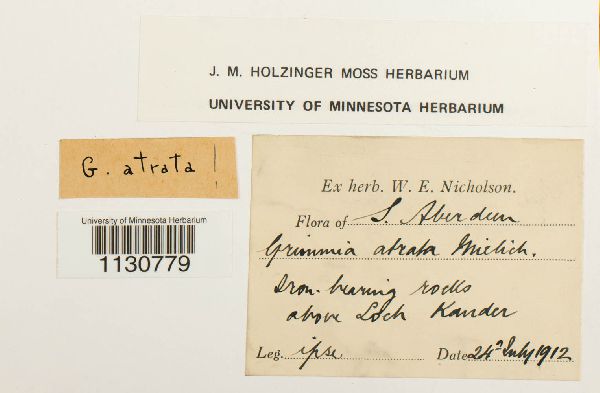 J. M. HOLZINGER MOSS HERBARIUM
UNIVERSITY OF MINNESOTA HERBARIUM
G. atrata
University of Minnesota Herbarium
1130779
Ex herb. W. E. Nicholson.
Flora of S. Aberdeen
Grimmia atrata Mielich.
Iron-bearing rocks
above Loch Kander
Leg. ipse Date 24 July 1912